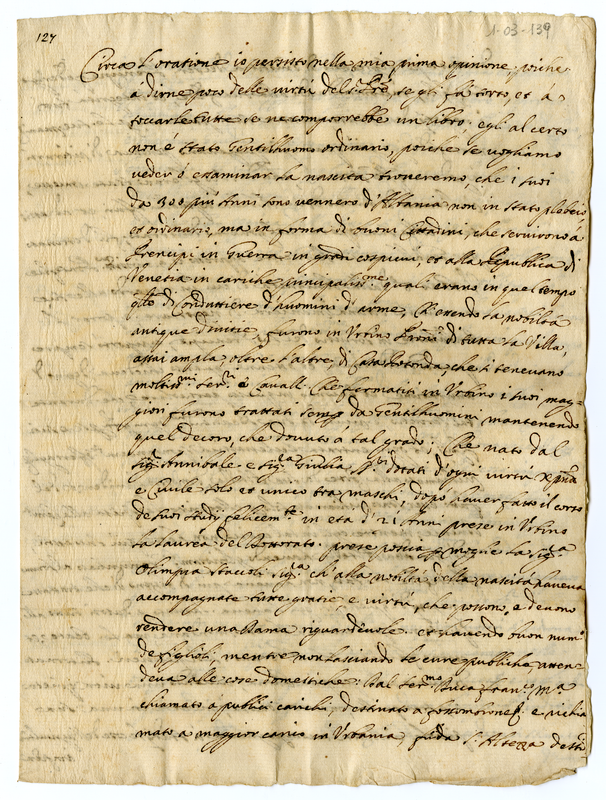 127
1-03-139
Circa l'oratione io persisto nella mia prima opinione, poiche
á dirne poco delle virtú del S.r Pre, se gli fá torto, et á
toccarle tutte se ne comporrebbe un libro; egli al certo
non é stato Gentilhuomo ordinario, poiche se vogliamo
veder ó essaminar la nascita troveremo, che i suoi
da 300 piú Anni sono vennero d'Albania non in stato plebeio
et ordinario, ma in forma di buoni Cittadini, che servirono á
Prencipi in Guerra in gradi cospicui, et alla Republica di
Venetia in cariche principaliss.me quali erano in quel tempo
qlle di Conduttiere d'huomini d'arme, Ch'essendo la nobiltá
antique divitie, furono in Urbino Pron.i di tutta la Villa,
assai ampla, oltre l'altre, di Casa Rotonda, che si tenevano
moltiss.mi ser.ri é Cavalli. Che fermatisi in Urbino i suoi mag=
giori furono trattati sempre da Gentilhuomini mantenendo
quel decoro, che dovuto á tal grado; Che nato dal
Sig.r Annibale e Sig.ra Giulia dotati d'ogni virtú
e Civile solo et unico tra maschi, dopo haver fatto il corso
de suoi studij felicem.te in etá d'21 Anni prese in Urbino
la laurea del Dottorato. prese poscia p moglie la Sig.ra
Olimpia Staccoli Sig.ra ch'alla nobiltá della nascita haveva
accompagnate tutte gratie, e virtú, che possono, e devono
rendere una Dama riguardévole. et havendo buon num.o
de figlioli, mentre non lasciando le cure publiche, atten=
deva alle cose domestiche: Dal Ser.mo Duca Fran.co M.a
chiamato a publici carichi, destinato a fossombrone e richia
mato a maggior carico in Urbania, S. Altezza desti